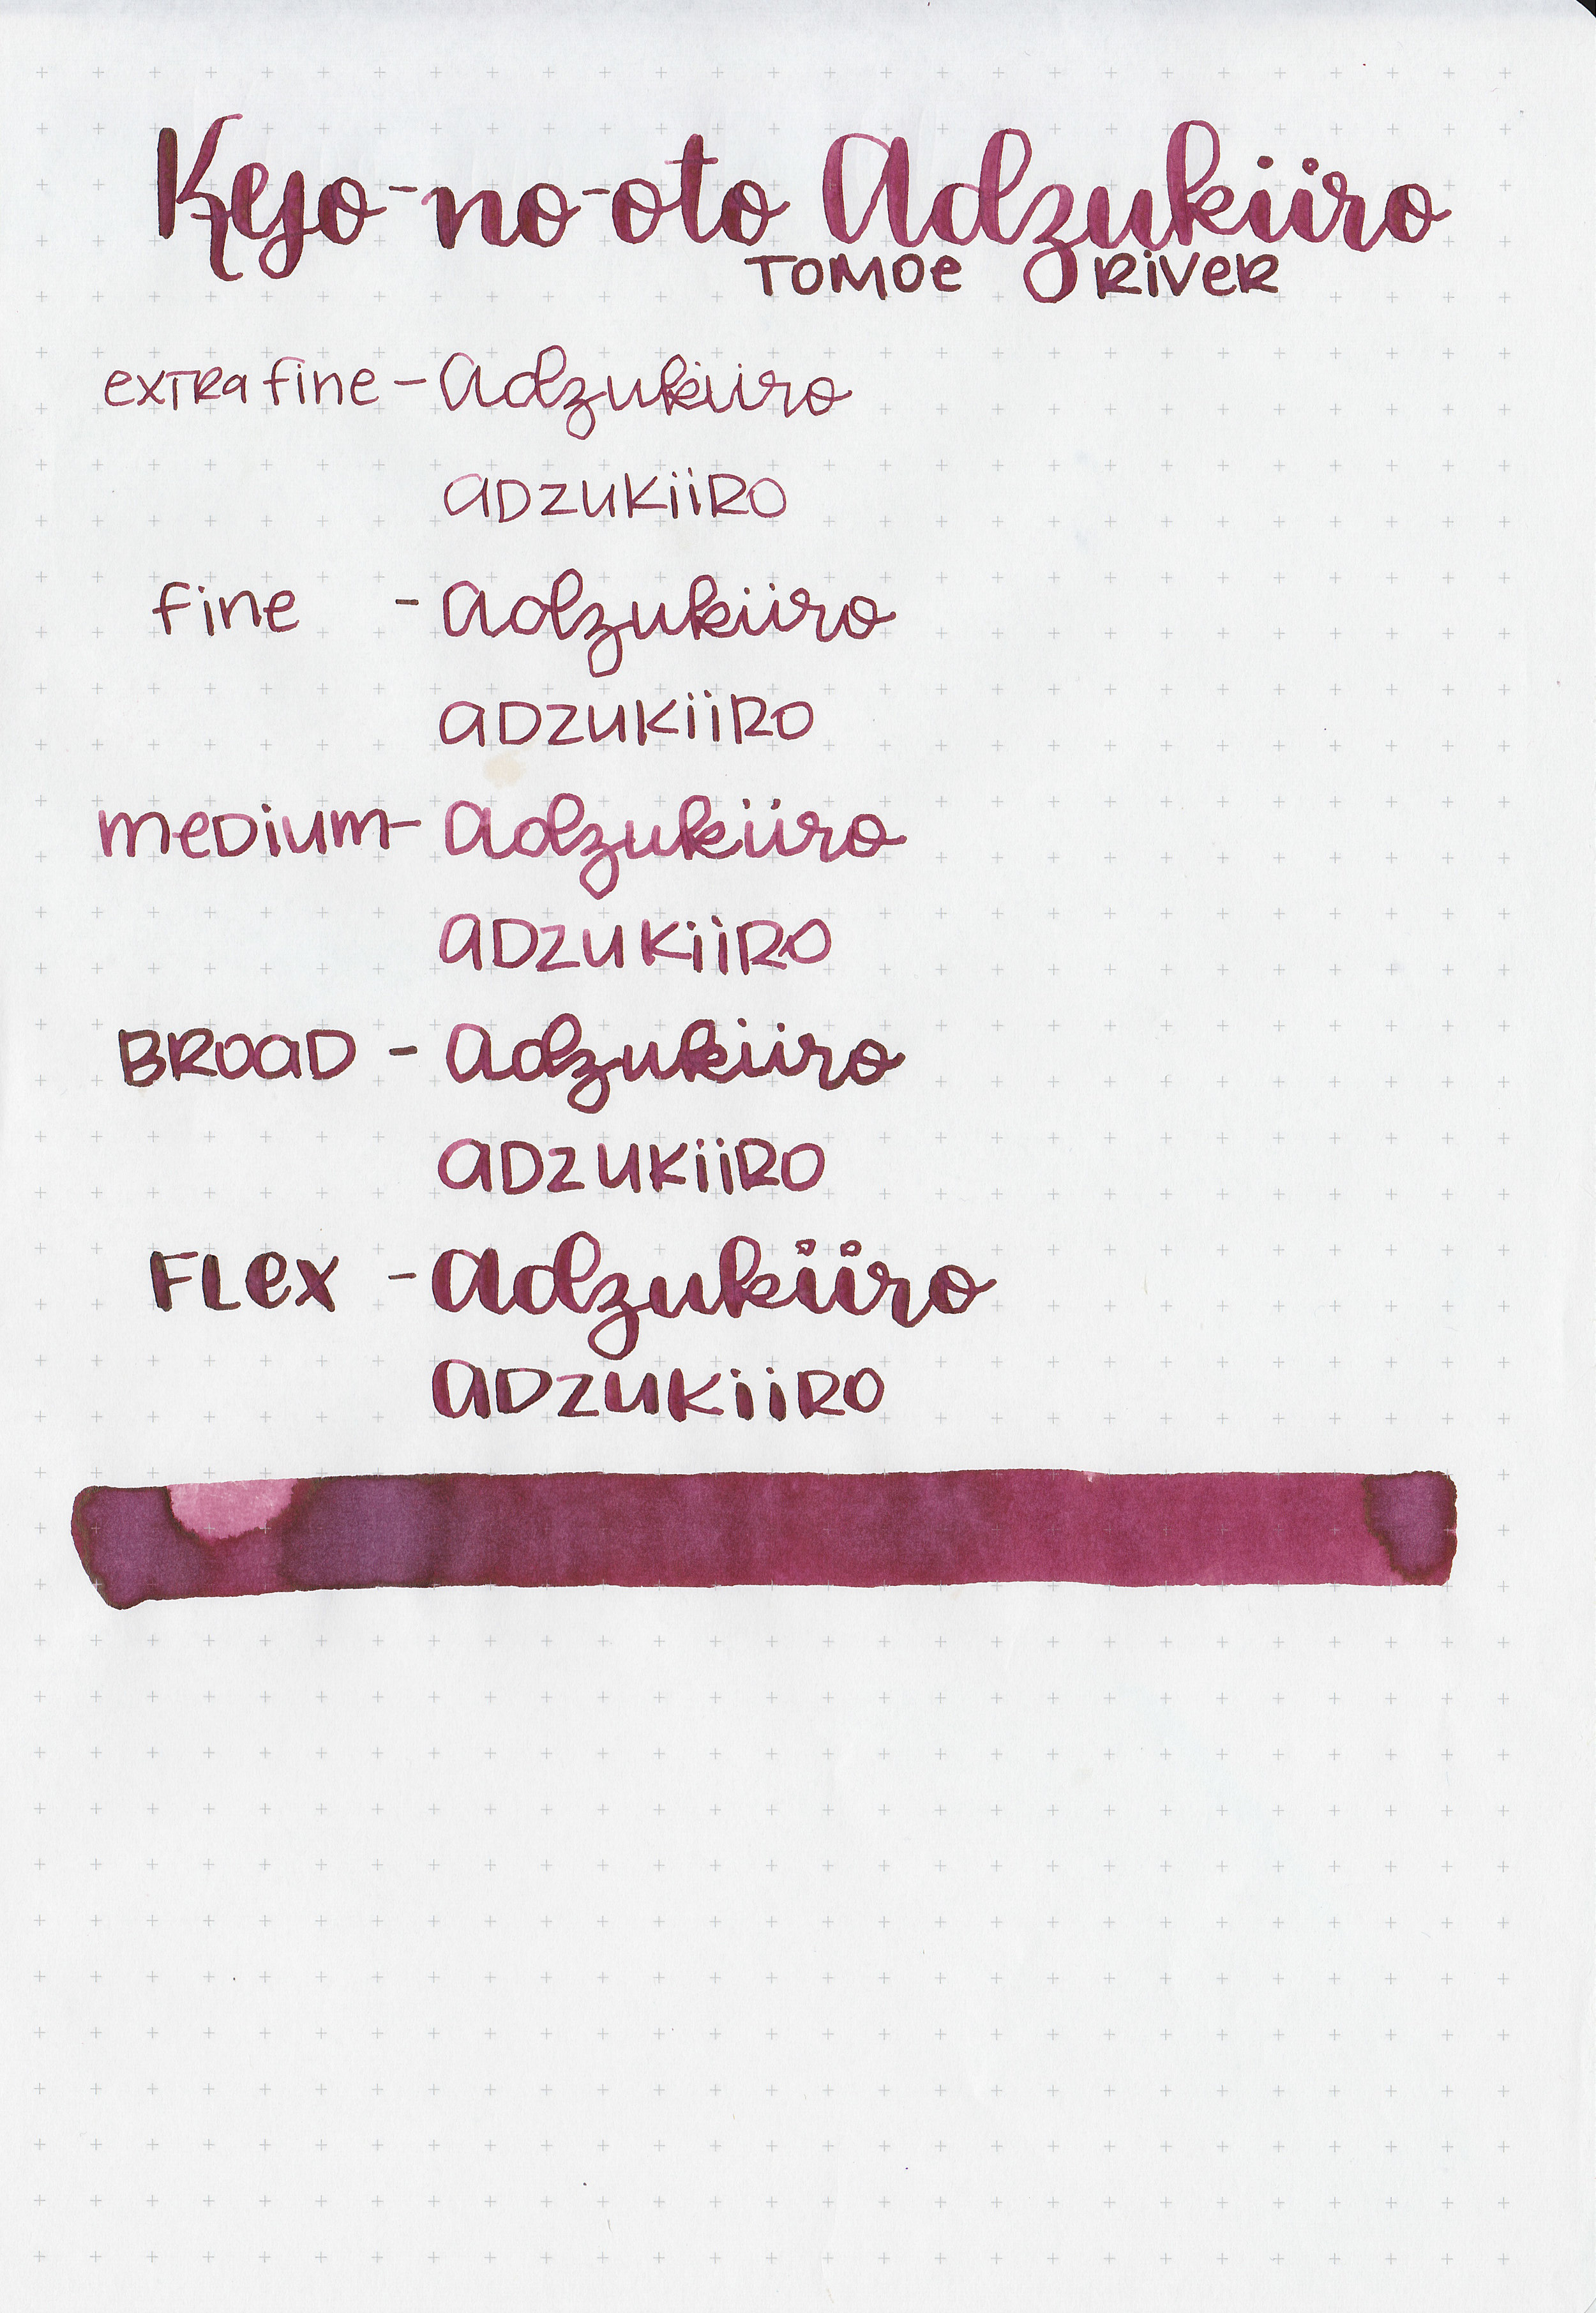 Kyo-no-oto Adzukiiro
TOMOe RiVeR
exTRa fine - Adzukiiro
aDZUKiiRO
fine - Adzukiiro
aDZUKiiRO
meDium - Adzukiiro
aDZUKiiRO
BROaD - Adzukiiro
aDZUKiiRO
FLex - Adzukiiro
aDZUKiiRO